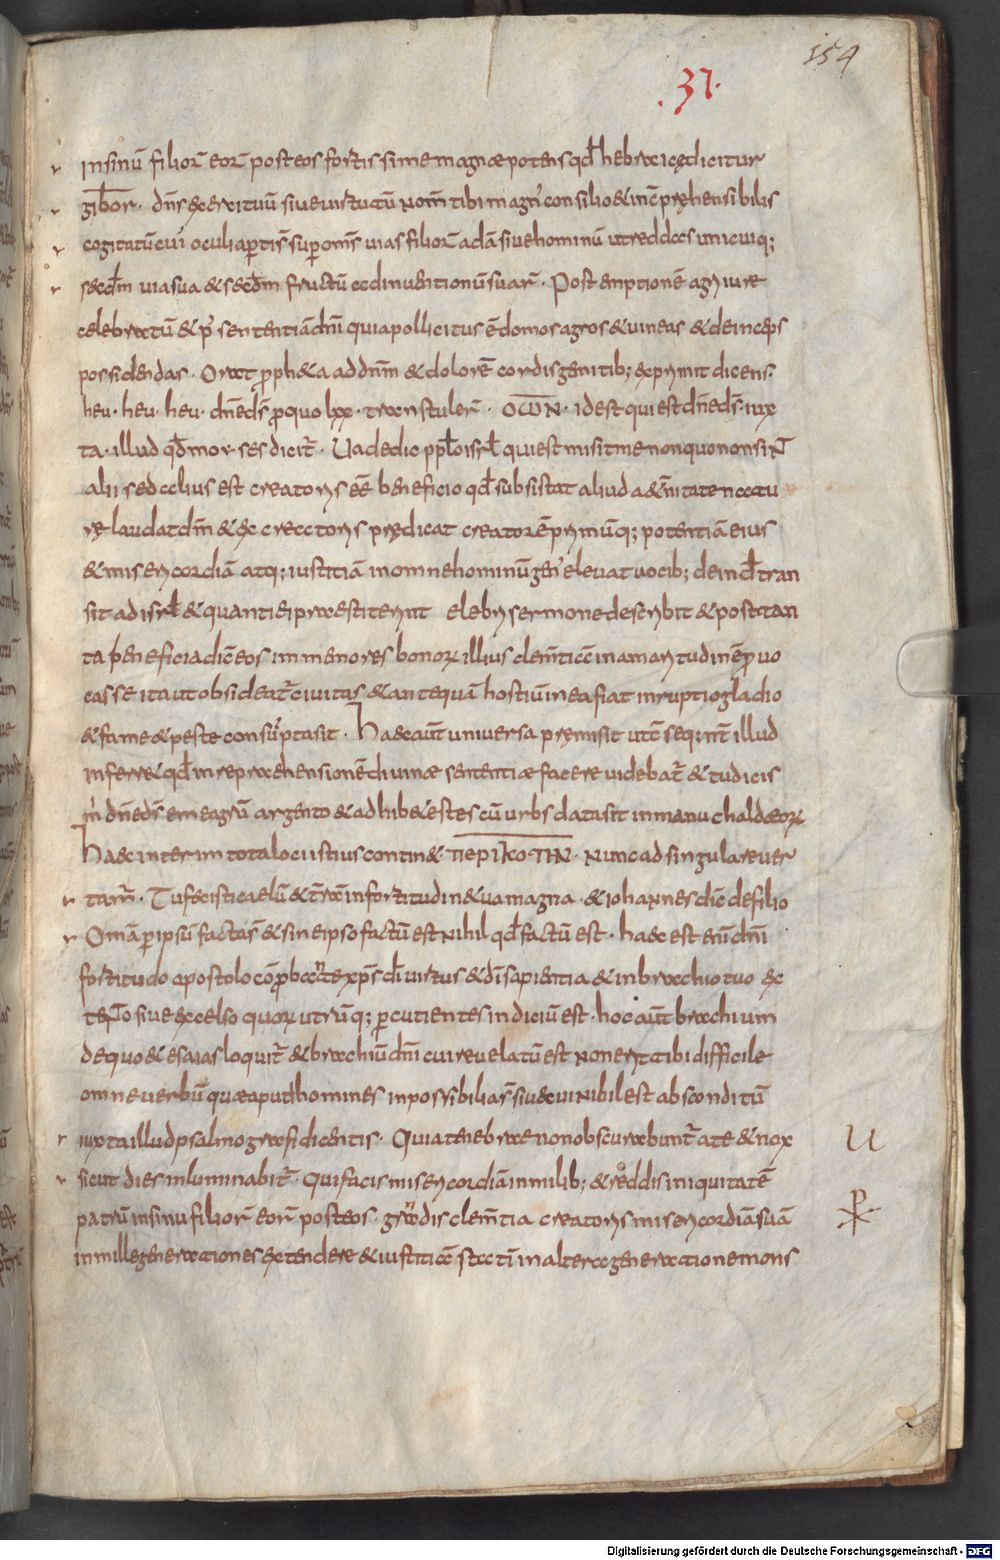 154
.37.
insinū filiorū eorū posteos fortissime magnæ potens qđ hebraicę dicitur
gibbor. dn̄s exercituū sive virtutū nom̄ tibi magn' consilio & inc̄pręhensibilis
cogitatū cuiꝰ oculi ap̄ti s̄ sup om̄s vias filiorū adā sive hominū ut reddas unicuiq;
secđm vias suas & secđm fructū adinventionū suarū. Post emptionē agri iure
celebratū & p' sententiā dn̄i quia pollicitus ē domos agros & vineas & deinceps
possidendas. Orat pph&a ad dn̄m & dolorē cordis gemitib; exprimit dicens.
heu. heu. heu. dn̄e ds̄ p quo lxx. transtuler̄. OωN. id est qui est dn̄e ds̄. iux
ta. illud qđ mor. ses dicit̄. Vade dic pplo isrł qui est misit me non quo non sint
alii sed alius est creatoris eē beneficio qđ subsistat aliud a&ernitate natu
rę laudat dm̄ & ex creatoris prędicat creatorē primūq; potentiā eius
& misericordiā atq; iustitiā in omne hominū gen' elevat vocib; deinđ tran
sit ad isrł & quanti ei praestiterint elebri sermone describit & post tan
ta beneficia dic̄ eos immemores bonorū illius clem̄tiā in amaritudinē provo
casse ita ut obsideat̄ civitas & antequā hostiū in ea fiat inruptio gladio
& fame & peste consūpta sit. Haec aut̄ universa pręmisit ut c̄seq;nt̄ illud
inferr& qđ in repraehensionē divinæ sententiæ facere videbat̄ & tu dicis
m̍ dn̄e ds̄ eme agrū argento & adhib& testes cū urbs data sit in manu chaldæorū
haec interim totalociistius contin&. ΠΕΡΙΚΟΠΗΝ. Nunc ad singula rever
tamr̄. Tu fecisti caelū & terrā in fortitudine tua magna. & iohannes dic̄ de filio
Om̄a p ipsū facta s̄ & sine ipso factū est nihil qđ factū est. haec est eni dn̄i
fortitudo apostolo cōprobante xp̄s dī virtus & dī sapientia & in brachio tuo ex
tento sive excelso quorū utrūq; pcutientes indiciū est. hoc aut̄ brachium
de quo & esaias loquit̄ & brachiū dn̄i cui revelatū est non erit tibi difficile
omne verbū quæ aput homines inpossibilia s̄ sive cui nihil est absconditū
iuxta illud psalmografi dicentis. Quia tenebrae non obscurabunt̄ a te & nox
sicut dies inluminabit̄. Qui facis misericordiā in milib; & reddis iniquitatē
patrū in sinu filiorū eorū post eos. grandis clem̄tia creatoris misericordiā suā
in mille generationes extendere & iustitiæ statī in altera generatione mons
U